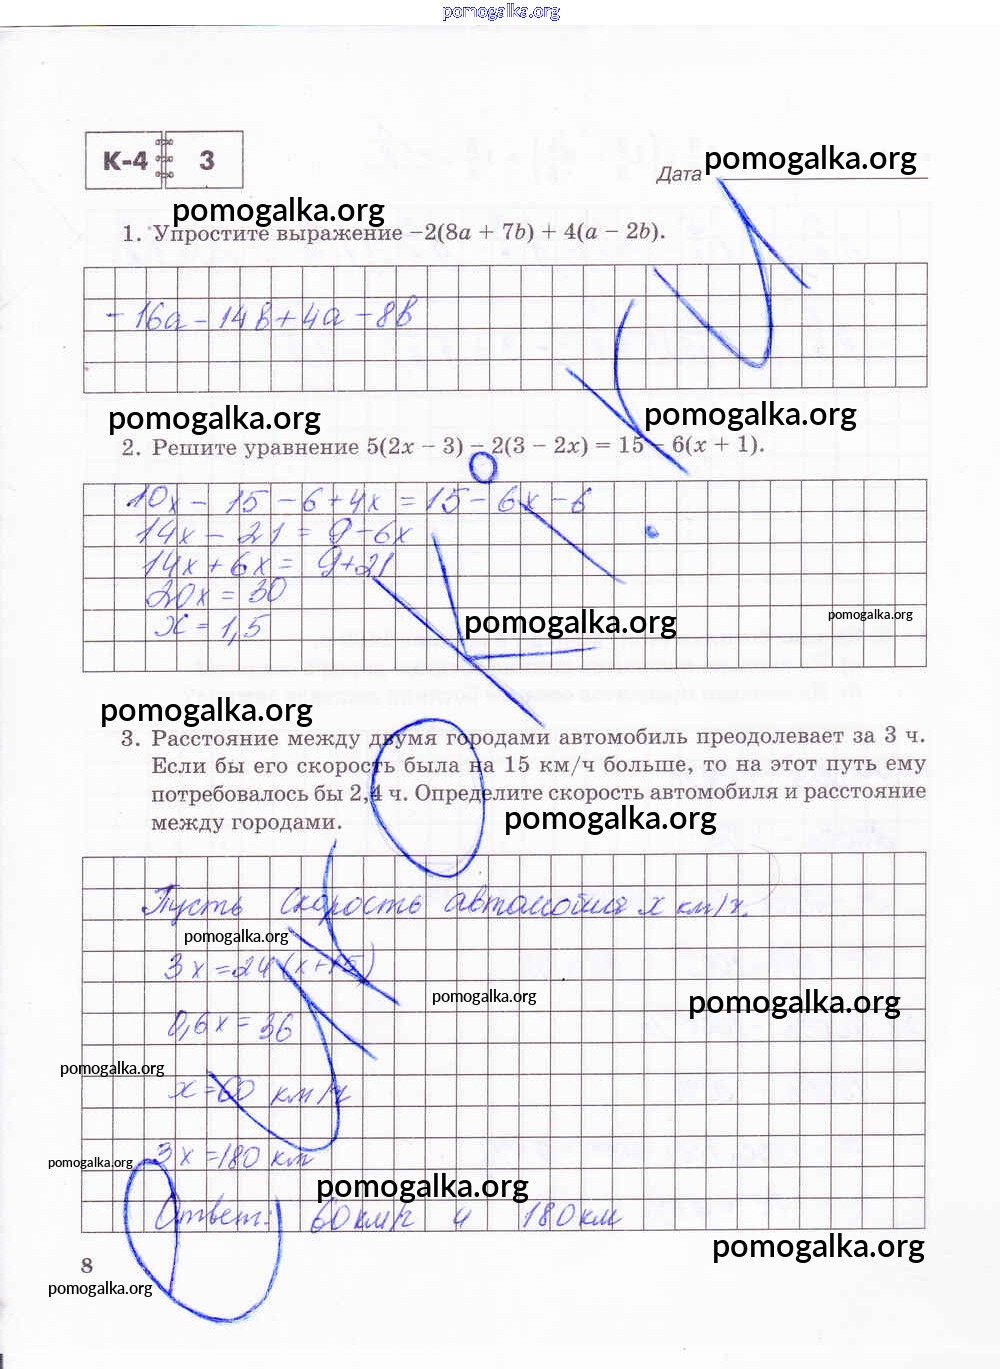 pomogalka.org
К-4 3
Дата pomogalka.org
pomogalka.org
1. Упростите выражение −2(8a + 7b) + 4(a − 2b).
- 16a - 14b + 4a - 8b
pomogalka.org pomogalka.org
2. Решите уравнение 5(2x − 3) − 2(3 − 2x) = 15 − 6(x + 1).
10x - 15 - 6 + 4x = 15 - 6x - 6
14x - 21 = 9 - 6x
14x + 6x = 9 + 21
20x = 30
pomogalka.org
x = 1,5
pomogalka.org
pomogalka.org
3. Расстояние между двумя городами автомобиль преодолевает за 3 ч.
Если бы его скорость была на 15 км/ч больше, то на этот путь ему
потребовалось бы 2,4 ч. Определите скорость автомобиля и расстояние
между городами.
pomogalka.org
Пусть скорость автомобиля x км/ч.
pomogalka.org
3x = 24 (x+15)
pomogalka.org pomogalka.org
0,6x = 36
pomogalka.org
x = 60 км/ч
3x = 180 км
pomogalka.org
pomogalka.org
Ответ: 60 км/ч и 180 км
pomogalka.org
8
pomogalka.org